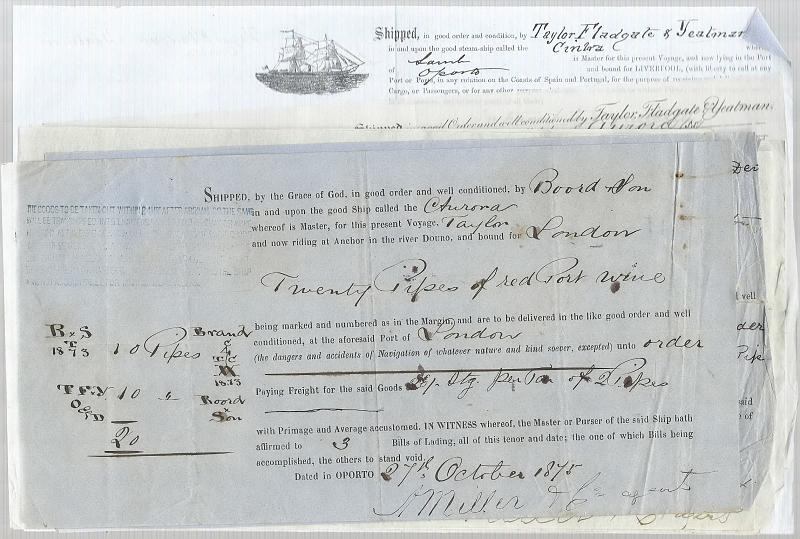 Shipped, in good order and condition, by Taylor Fladgate & Yeatman
in and upon the good steam-ship called the Cintra
is Master for this present Voyage, and now lying in the Port
Oporto and bound for LIVERPOOL, (with liberty to call at any
Port or Ports, in any rotation on the Coasts of Spain and Portugal, for the purpose of
Cargo, or Passengers, or for any other
Shipped in good Order and well conditioned by Taylor, Fladgate & Yeatman
SHIPPED, by the Grace of God, in good order and well conditioned, by Boord & Son
in and upon the good Ship called the Aurora
whereof is Master, for this present Voyage, Taylor
and now riding at Anchor in the river DOURO, and bound for London
Twenty Pipes of red Port wine
being marked and numbered as in the Margin, and are to be delivered in the like good order and well
conditioned, at the aforesaid Port of London
(the dangers and accidents of Navigation of whatever nature and kind soever, excepted) unto order
B & S
T
1873
10 Pipes
Brand
1873
T F & Y 10 "
Boord
&
Son
20
Paying Freight for the said Goods Stg. per Ton of 2 Pipes
with Primage and Average accustomed. IN WITNESS whereof, the Master or Purser of the said Ship hath
affirmed to 3 Bills of Lading, all of this tenor and date; the one of which Bills being
accomplished, the others to stand void.
Dated in OPORTO 27th October 1875
Miller & Co agents